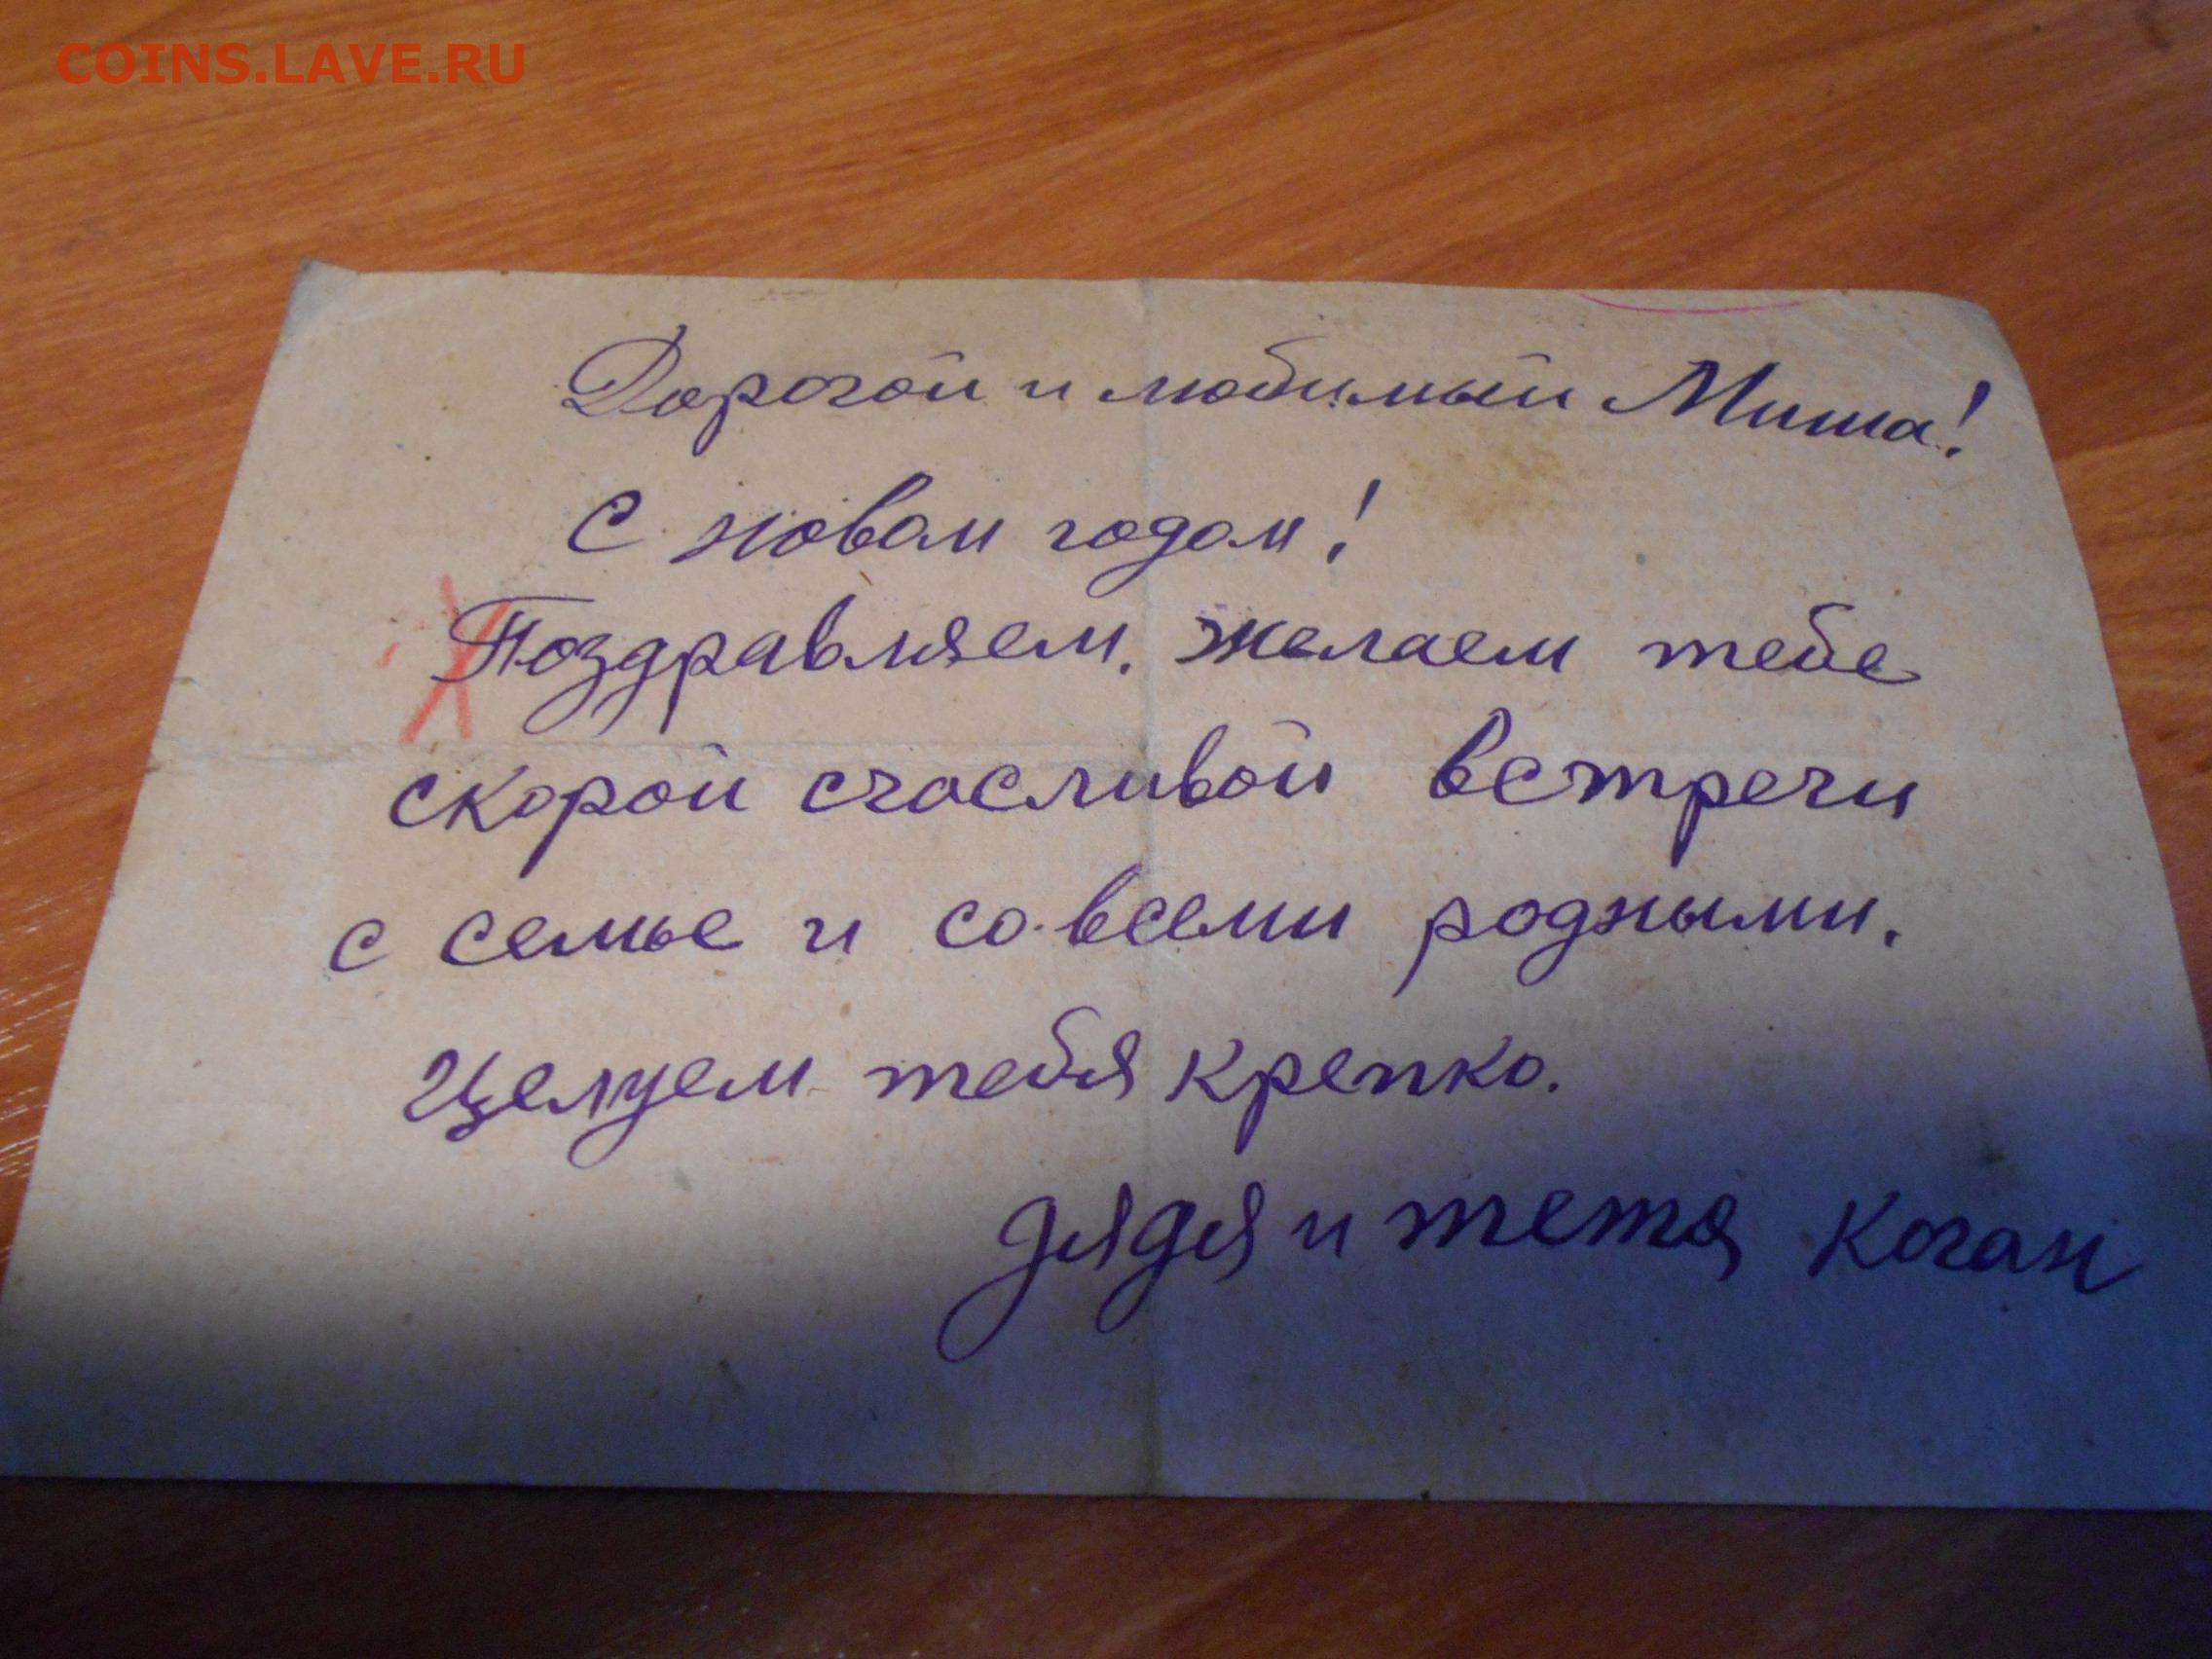 COINS.LAVE.RU
Дорогой и любимый Миша!
С новом годом!
Поздравляем. желаем тебе
скорой счасливой встречи
с семье и со всеми родными.
Целуем тебя крепко.
дядя и тетя Коган